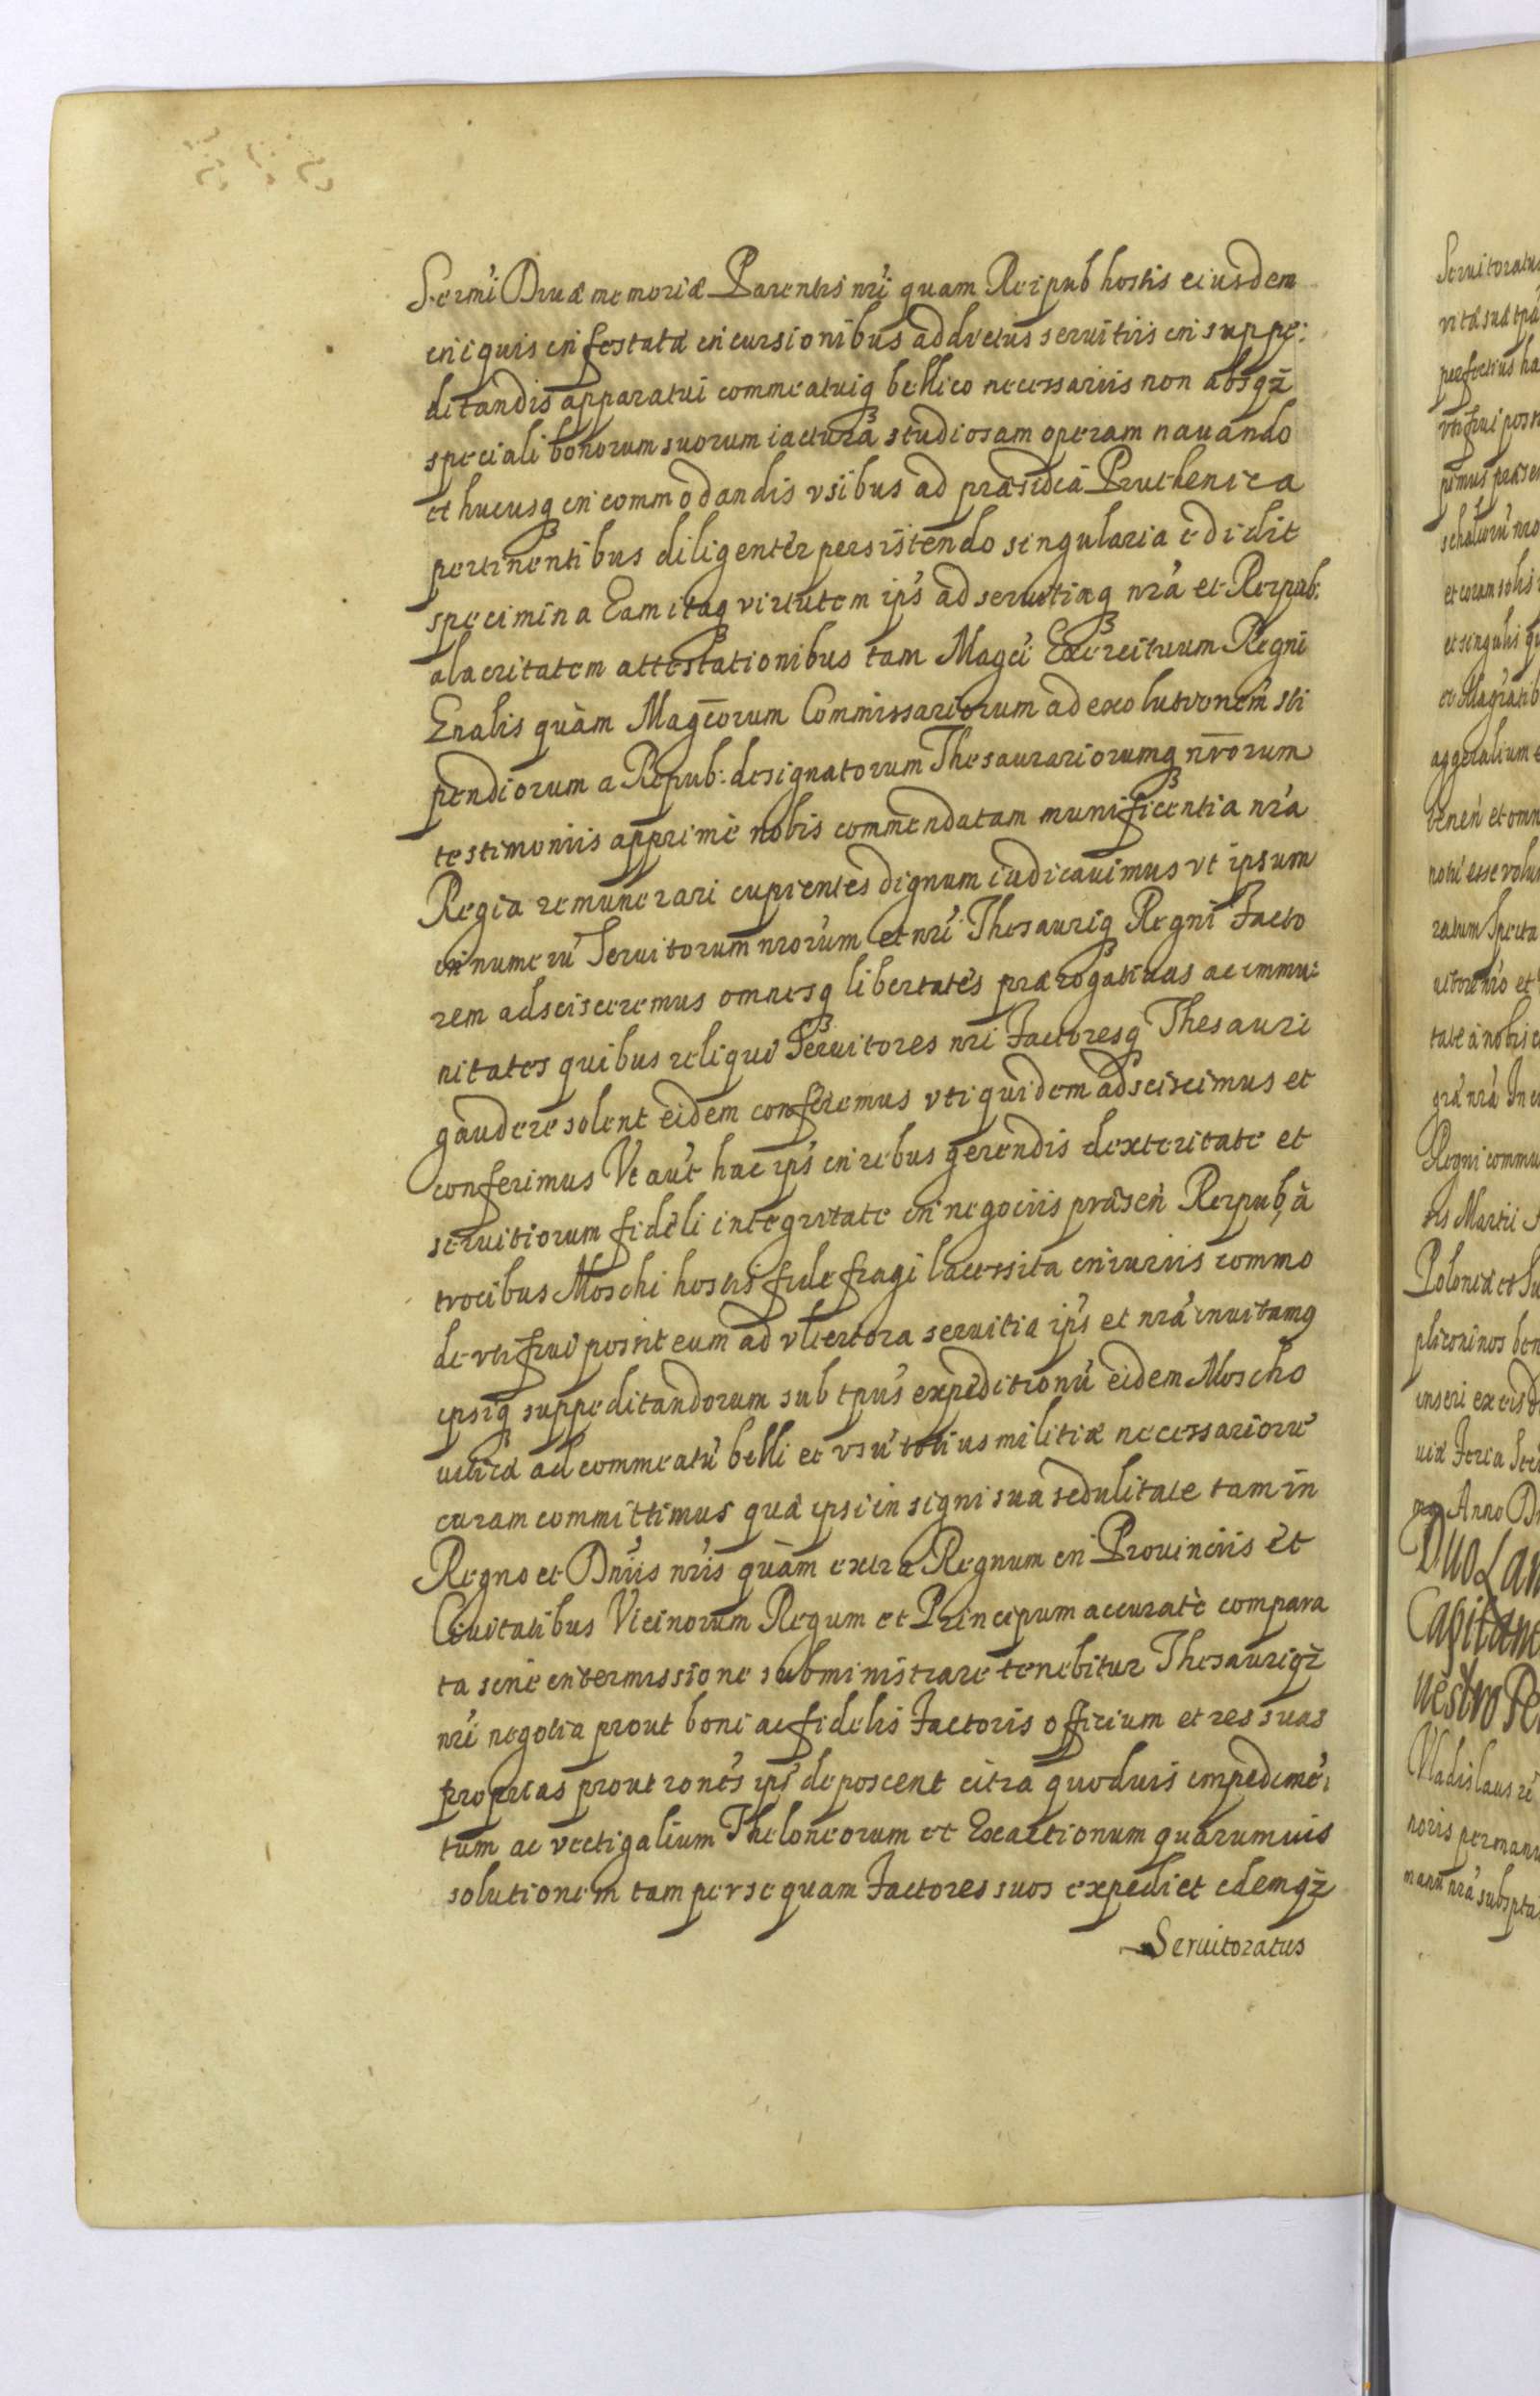 Sermi Diuæ memoriæ Parentis nri quam Reipub hostis eiusdem
iniquis infestatæ incursionibus addictus seruitiis in suppe:
ditandis apparatui commeatuiq bellico necessariis non absqz
speciali bonorum suorum iactura studiosam operam nauando
et hucusq in commodandis vsibus ad præsidia Pruthenica
pertinentibus diligenter persistendo singularia edidit
specimina Eam itaq virtutem ips ad seruitiaq nra et Reipub:
alacritatem attestationibus tam Magci Exercituum Regni
Gnalis quàm Magcorum Commissariorum ad exolutionem sti
pendiorum a Repub: designatorum Thesaurariorumq nrorum
testimoniis apprimè nobis commendatam munificentia nra
Regia remunerari cupientes dignum iudicauimus vt ipsum
in numerū Seruitorum nrorum et nri Thesauriq Regni Facto
rem adscisceremus omnesq libertates prærogatiuas ac immu:
nitates quibus reliqui Seruitores nri Factoresq Thesauri
gaudere solent eidem conferemus vti quidem adsciscimus et
conferimus Vt aut hac ips in rebus gerendis dexteritate et
seruitiorum fideli integritate in negociis præsen Reipub, à
trocibus Moschi hostis fidefragi lacessita iniuriis commo
de vti frui possit eum ad vlteriora seruitia ips et nra inuitamq
ipsiq suppeditandorum sub tpus expeditionū eidem Moscho
ad commeatū belli et vsū totius militiæ necessariorū
curam committimus quæ ipsi insigni sua sedulitate tam in
Regno et Dniis nris quàm extra Regnum in Prouinciis et
Ciuitatibus Vicinorum Regum et Principum accuratè compara
ta sine intermissione subministrare tenebitur Thesauriqz
nri negotia prout boni ac fidelis Factoris officium et res suas
proprias prout rones ips deposcent citra quoduis impedimē:
tum ac vectigalium Theloneorum et Exactionum quarumuis
solutionem tam per se quam Factores suos expediet edemqz
Seruitoratus